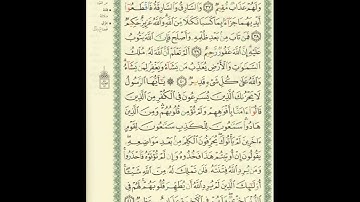 وَلَهُمْ عَذَابٌ مُّقِيمٌ ٣٧ وَٱلسَّارِقُ وَٱلسَّارِقَةُ فَٱقْطَعُوٓا۟
أَيْدِيَهُمَا جَزَآءًۢ بِمَا كَسَبَا نَكَٰلًا مِّنَ ٱللَّهِ وَٱللَّهُ عَزِيزٌ حَكِيمٌ
٣٨ فَمَن تَابَ مِنۢ بَعْدِ ظُلْمِهِۦ وَأَصْلَحَ فَإِنَّ ٱللَّهَ يَتُوبُ
عَلَيْهِ إِنَّ ٱللَّهَ غَفُورٌ رَّحِيمٌ ٣٩ أَلَمْ تَعْلَمْ أَنَّ ٱللَّهَ لَهُۥ مُلْكُ
ٱلسَّمَٰوَٰتِ وَٱلْأَرْضِ يُعَذِّبُ مَن يَشَآءُ وَيَغْفِرُ لِمَن يَشَآءُ
وَٱللَّهُ عَلَىٰ كُلِّ شَىْءٍ قَدِيرٌ ٤٠ ۞ يَٰٓأَيُّهَا ٱلرَّسُولُ
لَا يَحْزُنكَ ٱلَّذِينَ يُسَٰرِعُونَ فِى ٱلْكُفْرِ مِنَ ٱلَّذِينَ
قَالُوٓا۟ ءَامَنَّا بِأَفْوَٰهِهِمْ وَلَمْ تُؤْمِن قُلُوبُهُمْ وَمِنَ ٱلَّذِينَ
هَادُوا۟ سَمَّٰعُونَ لِلْكَذِبِ سَمَّٰعُونَ لِقَوْمٍ
ءَاخَرِينَ لَمْ يَأْتُوكَ يُحَرِّفُونَ ٱلْكَلِمَ مِنۢ بَعْدِ مَوَاضِعِهِۦ
يَقُولُونَ إِنْ أُوتِيتُمْ هَٰذَا فَخُذُوهُ وَإِن لَّمْ تُؤْتَوْهُ فَٱحْذَرُوا۟
وَمَن يُرِدِ ٱللَّهُ فِتْنَتَهُۥ فَلَن تَمْلِكَ لَهُۥ مِنَ ٱللَّهِ شَيْـًٔا
أُو۟لَٰٓئِكَ ٱلَّذِينَ لَمْ يُرِدِ ٱللَّهُ أَن يُطَهِّرَ قُلُوبَهُمْ لَهُمْ فِى